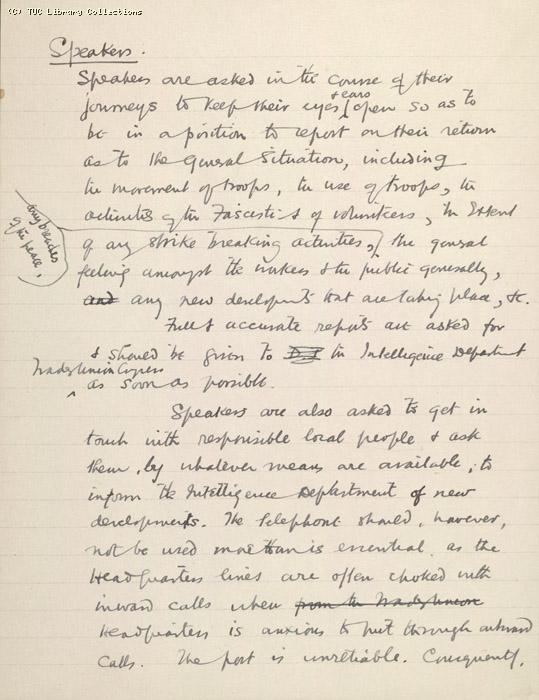 (C) TUC Library Collections
Speakers.
Speakers are asked in the course of their
& ears
journeys to keep their eyes open so as to
be in a position to report on their return
as to the general situation, including
the movement of troops, the use of troops, the
activities of the Fascisti & of volunteers, the extent
any breaches
of the peace,
of any strike breaking activities, the general
feeling amongst the workers & the public generally,
and any new developments that are taking place, &c.
Full & accurate reports are asked for
& should be given to the Intelligence Department
Trades Union Congress
as soon as possible.
Speakers are also asked to get in
touch with responsible local people & ask
them, by whatever means are available, to
inform the Intelligence Department of new
developments. The telephone should, however,
not be used more than is essential as the
Headquarters lines are often choked with
inward calls when from the Trades Union
Headquarters is anxious to put through outward
calls. The post is unreliable. Consequently,